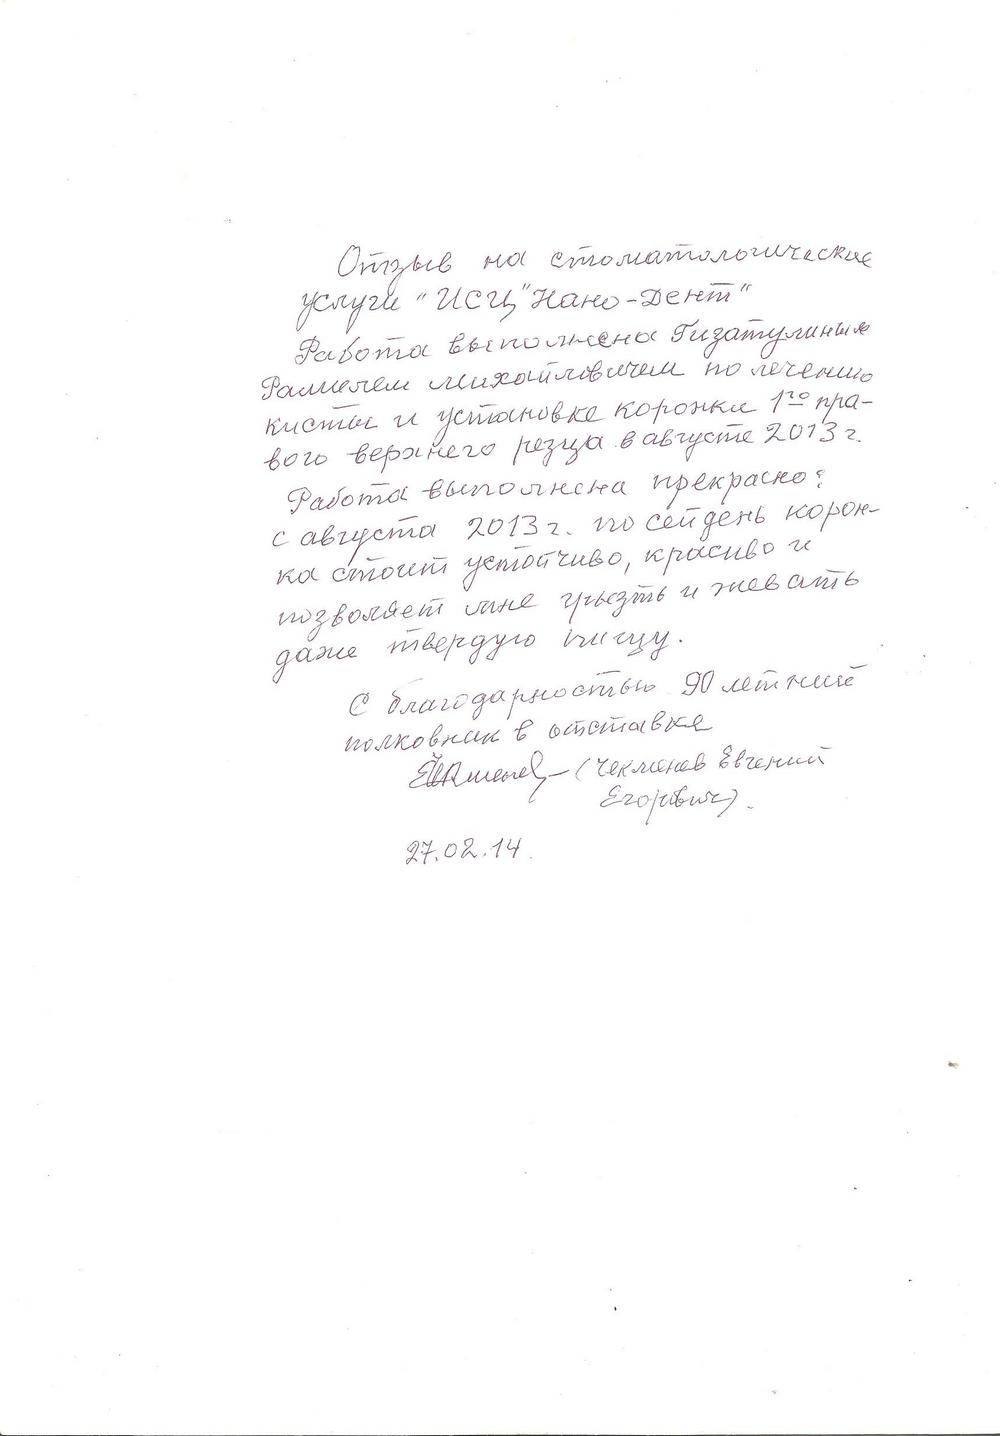 Отзыв на стоматологические
услуги "ИСЦ "Нано-Дент"
Работа выполнена Гизатулиным
Рамилем Михайловичем по лечению
кисты и установке коронки 1го пра-
вого верхнего резца в августе 2013 г.
Работа выполнена прекрасно:
с августа 2013 г. по сей день корон-
ка стоит устойчиво, красиво и
позволяет мне грызть и жевать
даже твердую пищу.
С благодарностью 90 летний
полковник в отставке
(Чекменев Евгений
Егорович).
27.02.14.